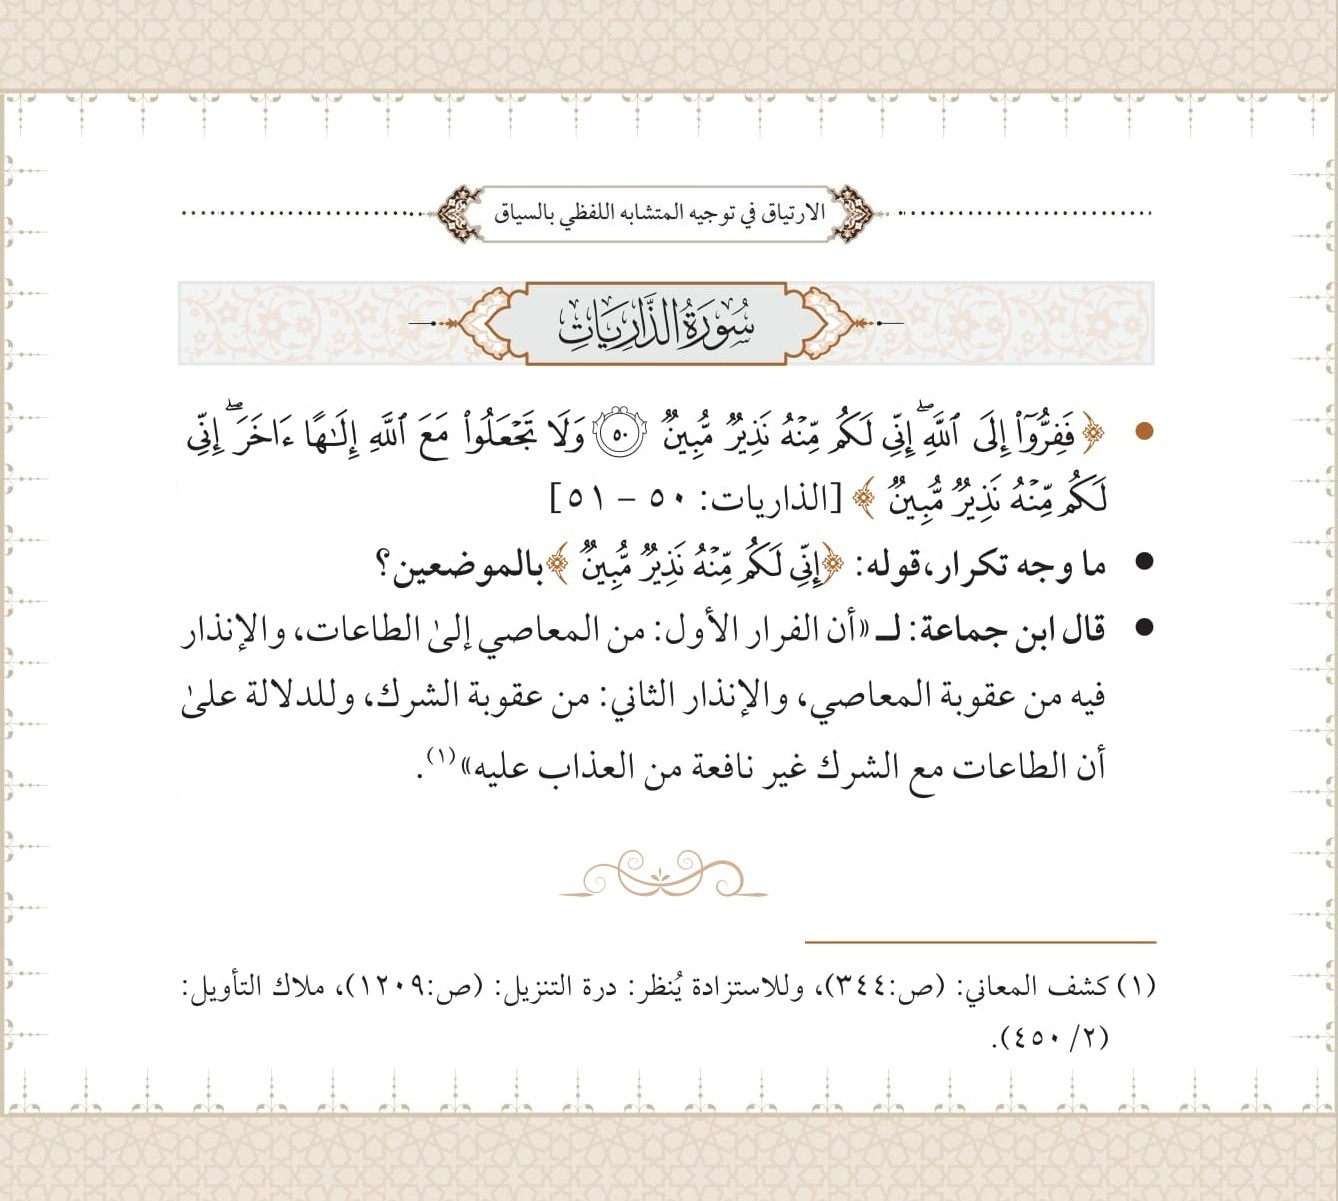 الارتياق في توجيه المتشابه اللفظي بالسياق
سُورَةُ الذَّارِيَاتِ
• ﴿فَفِرُّوٓا۟ إِلَى ٱللَّهِ ۖ إِنِّى لَكُم مِّنْهُ نَذِيرٌ مُّبِينٌ ۝٥٠ وَلَا تَجْعَلُوا۟ مَعَ ٱللَّهِ إِلَـٰهًا ءَاخَرَ ۖ إِنِّى
لَكُم مِّنْهُ نَذِيرٌ مُّبِينٌ﴾ [الذاريات: ٥٠ – ٥١]
• ما وجه تكرار،قوله: ﴿إِنِّى لَكُم مِّنْهُ نَذِيرٌ مُّبِينٌ﴾بالموضعين؟
• قال ابن جماعة: لـ «أن الفرار الأول: من المعاصي إلىٰ الطاعات، والإنذار
فيه من عقوبة المعاصي، والإنذار الثاني: من عقوبة الشرك، وللدلالة علىٰ
أن الطاعات مع الشرك غير نافعة من العذاب عليه»(١).
(١) كشف المعاني: (ص:٣٤٤)، وللاستزادة يُنظر: درة التنزيل: (ص:١٢٠٩)، ملاك التأويل:
(٢/ ٤٥٠).